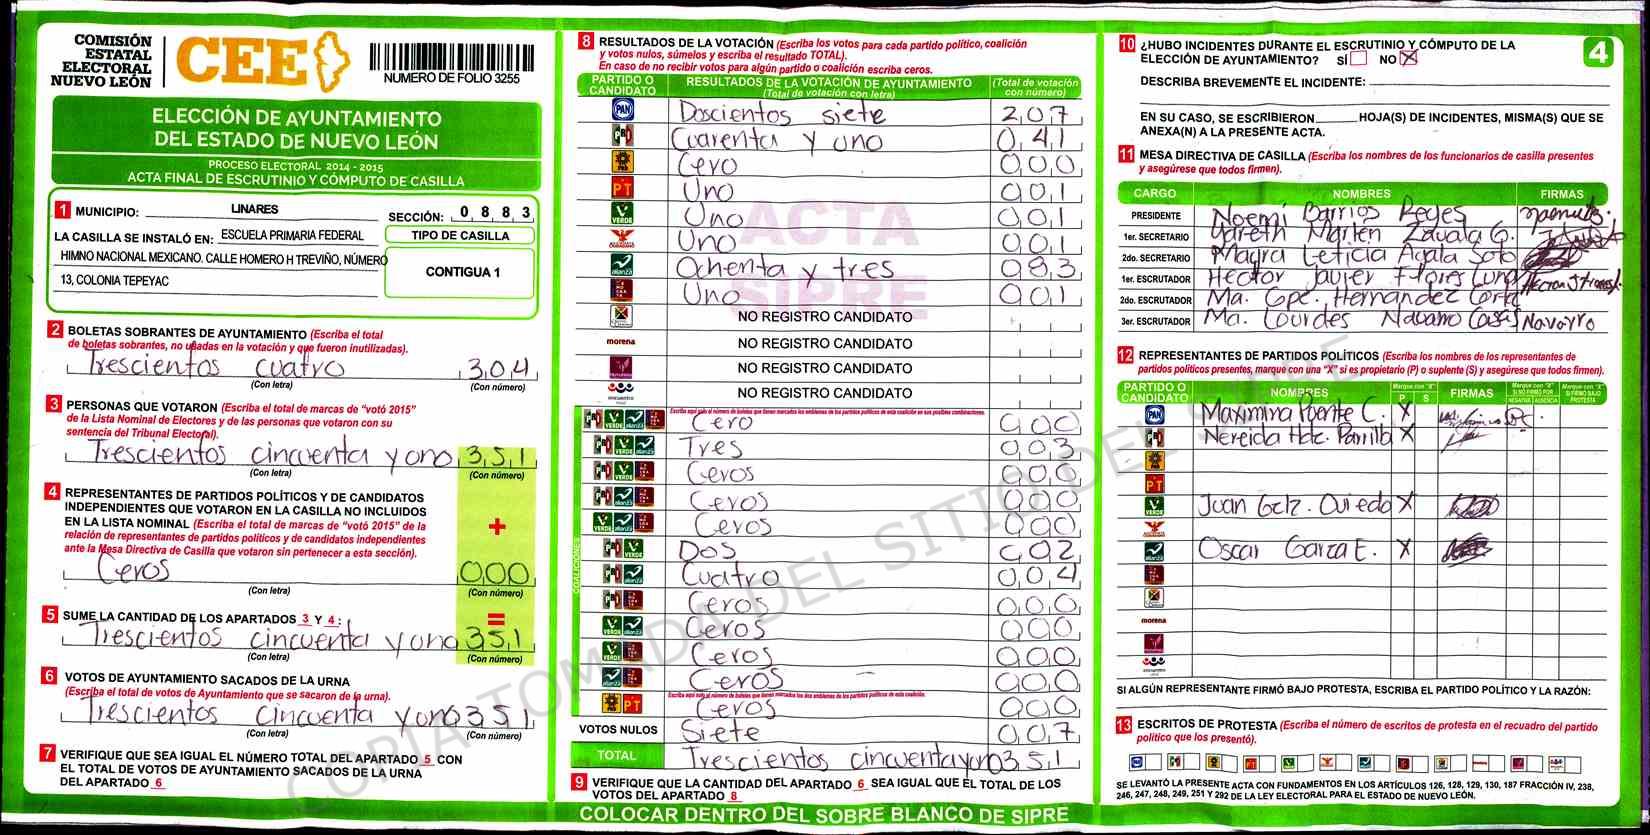 COMISIÓN
ESTATAL
ELECTORAL
NUEVO LEÓN
CEE
NUMERO DE FOLIO 3255
ELECCIÓN DE AYUNTAMIENTO
DEL ESTADO DE NUEVO LEÓN
PROCESO ELECTORAL 2014 - 2015
ACTA FINAL DE ESCRUTINIO Y CÓMPUTO DE CASILLA
1 MUNICIPIO: LINARES SECCIÓN: 0 8 8 3
LA CASILLA SE INSTALÓ EN: ESCUELA PRIMARIA FEDERAL
HIMNO NACIONAL MEXICANO. CALLE HOMERO H TREVIÑO, NÚMERO
13, COLONIA TEPEYAC
TIPO DE CASILLA
CONTIGUA 1
2 BOLETAS SOBRANTES DE AYUNTAMIENTO (Escriba el total
de boletas sobrantes, no usadas en la votación y que fueron inutilizadas).
Trescientos cuatro 304
(Con letra) (Con número)
3 PERSONAS QUE VOTARON (Escriba el total de marcas de "votó 2015"
de la Lista Nominal de Electores y de las personas que votaron con su
sentencia del Tribunal Electoral).
Trescientos cincuenta y uno 351
(Con letra) (Con número)
4 REPRESENTANTES DE PARTIDOS POLÍTICOS Y DE CANDIDATOS
INDEPENDIENTES QUE VOTARON EN LA CASILLA NO INCLUIDOS
EN LA LISTA NOMINAL (Escriba el total de marcas de "votó 2015" de la
relación de representantes de partidos políticos y de candidatos independientes
ante la Mesa Directiva de Casilla que votaron sin pertenecer a esta sección).
+
Ceros 000
(Con letra) (Con número)
=
5 SUME LA CANTIDAD DE LOS APARTADOS 3 Y 4:
Trescientos cincuenta y uno 351
(Con letra) (Con número)
6 VOTOS DE AYUNTAMIENTO SACADOS DE LA URNA
(Escriba el total de votos de Ayuntamiento que se sacaron de la urna).
Trescientos cincuenta y uno 351
(Con letra) (Con número)
7 VERIFIQUE QUE SEA IGUAL EL NÚMERO TOTAL DEL APARTADO 5 CON
EL TOTAL DE VOTOS DE AYUNTAMIENTO SACADOS DE LA URNA
DEL APARTADO 6
8 RESULTADOS DE LA VOTACIÓN (Escriba los votos para cada partido político, coalición
y votos nulos, súmelos y escriba el resultado TOTAL).
En caso de no recibir votos para algún partido o coalición escriba ceros.
PARTIDO O CANDIDATO RESULTADOS DE LA VOTACIÓN DE AYUNTAMIENTO (Total de votación con letra) (Total de votación con número)
PAN Doscientos siete 207
PRI Cuarenta y uno 041
PRD Cero 000
PT Uno 001
VERDE Uno 001
Uno 001
alianza Ochenta y tres 083
Uno 001
NO REGISTRO CANDIDATO
morena NO REGISTRO CANDIDATO
NO REGISTRO CANDIDATO
encuentro NO REGISTRO CANDIDATO
ACTA
SIPRE
COALICIONES
Escriba aquí solo el número de boletas que tienen marcados los emblemas de los partidos políticos de esta coalición en sus posibles combinaciones.
Cero 000
Tres 003
Ceros 000
Ceros 000
Ceros 000
Dos 002
Cuatro 004
Ceros 000
Ceros 000
Ceros 000
Ceros 000
Escriba aquí solo el número de boletas que tienen marcados los dos emblemas de los partidos políticos de esta coalición.
PT Ceros 000
VOTOS NULOS Siete 007
TOTAL Trescientos cincuenta y uno 351
9 VERIFIQUE QUE LA CANTIDAD DEL APARTADO 6 SEA IGUAL QUE EL TOTAL DE LOS
VOTOS DEL APARTADO 8
COLOCAR DENTRO DEL SOBRE BLANCO DE SIPRE
10 ¿HUBO INCIDENTES DURANTE EL ESCRUTINIO Y CÓMPUTO DE LA
ELECCIÓN DE AYUNTAMIENTO? SÍ NO X
4
DESCRIBA BREVEMENTE EL INCIDENTE:
EN SU CASO, SE ESCRIBIERON HOJA(S) DE INCIDENTES, MISMA(S) QUE SE
ANEXA(N) A LA PRESENTE ACTA.
11 MESA DIRECTIVA DE CASILLA (Escriba los nombres de los funcionarios de casilla presentes
y asegúrese que todos firmen).
CARGO NOMBRES FIRMAS
PRESIDENTE Noemi Barrios Reyes
1er. SECRETARIO Yareth Marlen Zavala G.
2do. SECRETARIO Mayra Leticia Ayala Soto
1er. ESCRUTADOR Hector Javier Flores Luna
2do. ESCRUTADOR Ma. Gpe. Hernandez
3er. ESCRUTADOR Ma. Lourdes Navarro Casas Navarro
12 REPRESENTANTES DE PARTIDOS POLÍTICOS (Escriba los nombres de los representantes de
partidos políticos presentes, marque con una "X" si es propietario (P) o suplente (S) y asegúrese que todos firmen).
PARTIDO O CANDIDATO NOMBRES Marque con "X" P S FIRMAS Marque con "X" SI NO FIRMÓ POR NEGATIVA AUSENCIA Marque con "X" SI FIRMÓ BAJO PROTESTA
PAN Maximina Puente C. X
PRI Nereida Hdz. Parrilla X
PRD
PT
VERDE Juan Glz. Oviedo X
alianza Oscar Garza E. X
morena
encuentro
SI ALGÚN REPRESENTANTE FIRMÓ BAJO PROTESTA, ESCRIBA EL PARTIDO POLÍTICO Y LA RAZÓN:
13 ESCRITOS DE PROTESTA (Escriba el número de escritos de protesta en el recuadro del partido
político que los presentó).
SE LEVANTÓ LA PRESENTE ACTA CON FUNDAMENTOS EN LOS ARTÍCULOS 126, 128, 129, 130, 187 FRACCIÓN IV, 238,
246, 247, 248, 249, 251 Y 292 DE LA LEY ELECTORAL PARA EL ESTADO DE NUEVO LEÓN.
COPIA TOMADA DEL SITIO DEL SIPRE